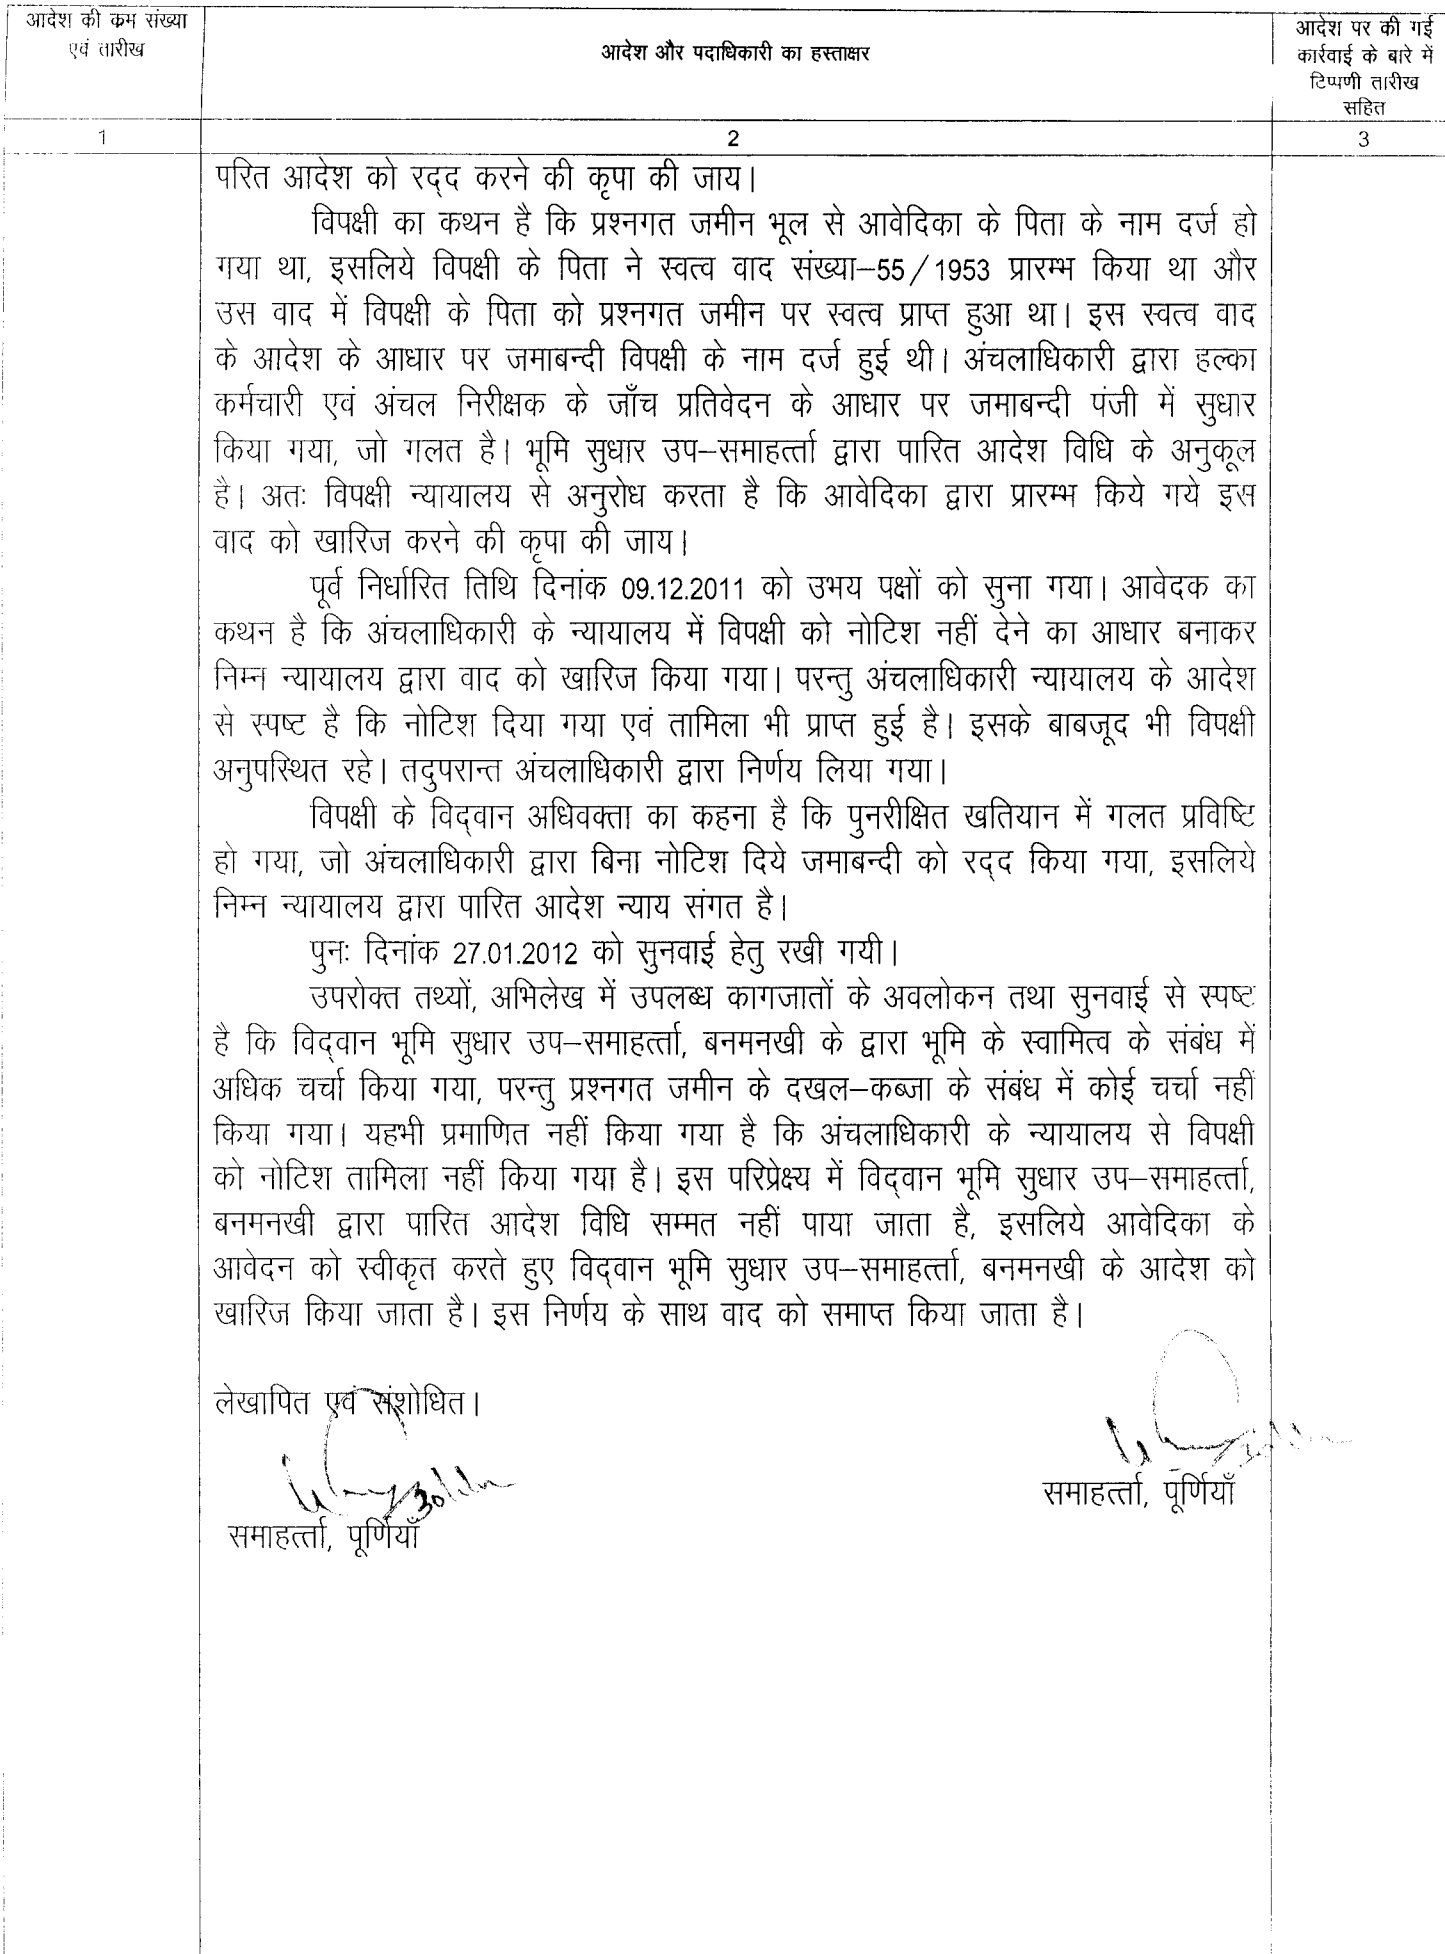 आदेश की कम संख्या
एवं तारीख
आदेश और पदाधिकारी का हस्ताक्षर
आदेश पर की गई
कार्रवाई के बारे में
टिप्पणी तारीख
सहित
1
2
3
परित आदेश को रद्द करने की कृपा की जाय।
विपक्षी का कथन है कि प्रश्नगत जमीन भूल से आवेदिका के पिता के नाम दर्ज हो
गया था, इसलिये विपक्षी के पिता ने स्वत्व वाद संख्या–55/1953 प्रारम्भ किया था और
उस वाद में विपक्षी के पिता को प्रश्नगत जमीन पर स्वत्व प्राप्त हुआ था। इस स्वत्व वाद
के आदेश के आधार पर जमाबन्दी विपक्षी के नाम दर्ज हुई थी। अंचलाधिकारी द्वारा हल्का
कर्मचारी एवं अंचल निरीक्षक के जाँच प्रतिवेदन के आधार पर जमाबन्दी पंजी में सुधार
किया गया, जो गलत है। भूमि सुधार उप–समाहर्त्ता द्वारा पारित आदेश विधि के अनुकूल
है। अतः विपक्षी न्यायालय से अनुरोध करता है कि आवेदिका द्वारा प्रारम्भ किये गये इस
वाद को खारिज करने की कृपा की जाय।
पूर्व निर्धारित तिथि दिनांक 09.12.2011 को उभय पक्षों को सुना गया। आवेदक का
कथन है कि अंचलाधिकारी के न्यायालय में विपक्षी को नोटिश नहीं देने का आधार बनाकर
निम्न न्यायालय द्वारा वाद को खारिज किया गया। परन्तु अंचलाधिकारी न्यायालय के आदेश
से स्पष्ट है कि नोटिश दिया गया एवं तामिला भी प्राप्त हुई है। इसके बाबजूद भी विपक्षी
अनुपस्थित रहे। तदुपरान्त अंचलाधिकारी द्वारा निर्णय लिया गया।
विपक्षी के विद्वान अधिवक्ता का कहना है कि पुनरीक्षित खतियान में गलत प्रविष्टि
हो गया, जो अंचलाधिकारी द्वारा बिना नोटिश दिये जमाबन्दी को रद्द किया गया, इसलिये
निम्न न्यायालय द्वारा पारित आदेश न्याय संगत है।
पुनः दिनांक 27.01.2012 को सुनवाई हेतु रखी गयी।
उपरोक्त तथ्यों, अभिलेख में उपलब्ध कागजातों के अवलोकन तथा सुनवाई से स्पष्ट
है कि विद्वान भूमि सुधार उप–समाहर्त्ता, बनमनखी के द्वारा भूमि के स्वामित्व के संबंध में
अधिक चर्चा किया गया, परन्तु प्रश्नगत जमीन के दखल–कब्जा के संबंध में कोई चर्चा नहीं
किया गया। यहभी प्रमाणित नहीं किया गया है कि अंचलाधिकारी के न्यायालय से विपक्षी
को नोटिश तामिला नहीं किया गया है। इस परिप्रेक्ष्य में विद्वान भूमि सुधार उप–समाहर्त्ता,
बनमनखी द्वारा पारित आदेश विधि सम्मत नहीं पाया जाता है, इसलिये आवेदिका के
आवेदन को स्वीकृत करते हुए विद्वान भूमि सुधार उप–समाहर्त्ता, बनमनखी के आदेश को
खारिज किया जाता है। इस निर्णय के साथ वाद को समाप्त किया जाता है।
लेखापित एवं संशोधित।
समाहर्त्ता, पूर्णियाँ
समाहर्त्ता, पूर्णियाँ